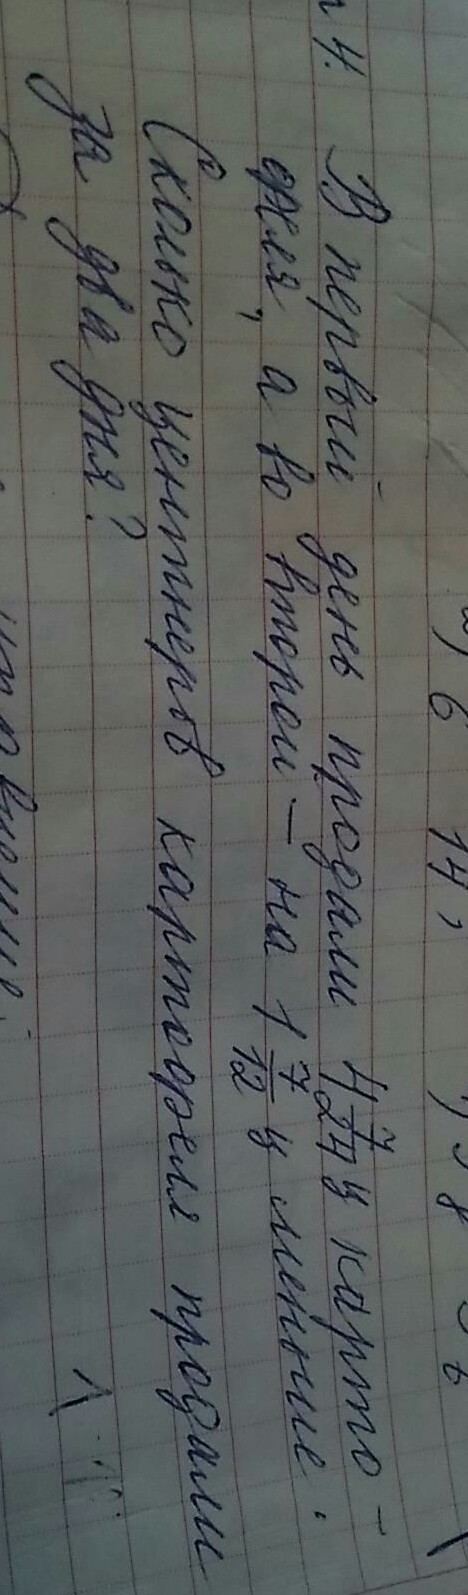 4. В первый день продали 4 7/24 ц карто-
феля, а во второй – на 1 7/12 ц меньше.
Сколько центнеров картофеля продали
за два дня?